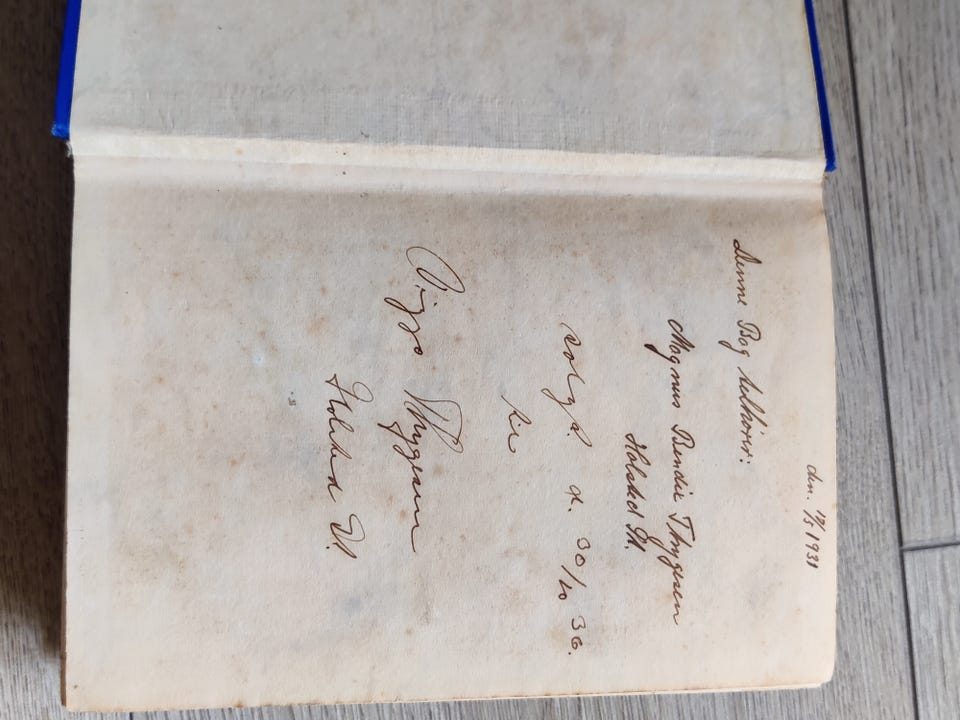 den. 19/5 1931
Denne Bog tilhører:
Magnus Bendix Thygesen
Holsted St.
solgt. d. 30/10 36.
til
Viggo Thygesen
Holsted St.